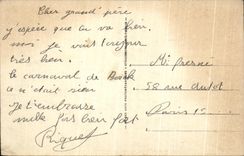 Cher grand' père
j'espère que tu va bien
moi je vais toujours
très bien.
le carnaval de
c'était bien
Je t'embrasse
mille fois bien fort
Riquet
Mr Fresne
58 rue dutot
Paris 15